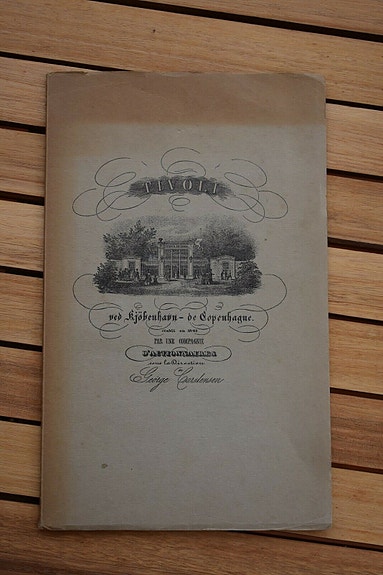 TIVOLI
ved Kjöbenhavn - de Copenhague.
établi en
PAR UNE COMPAGNIE
D'ACTIONNAIRES
sous la Direction
George Carstensen